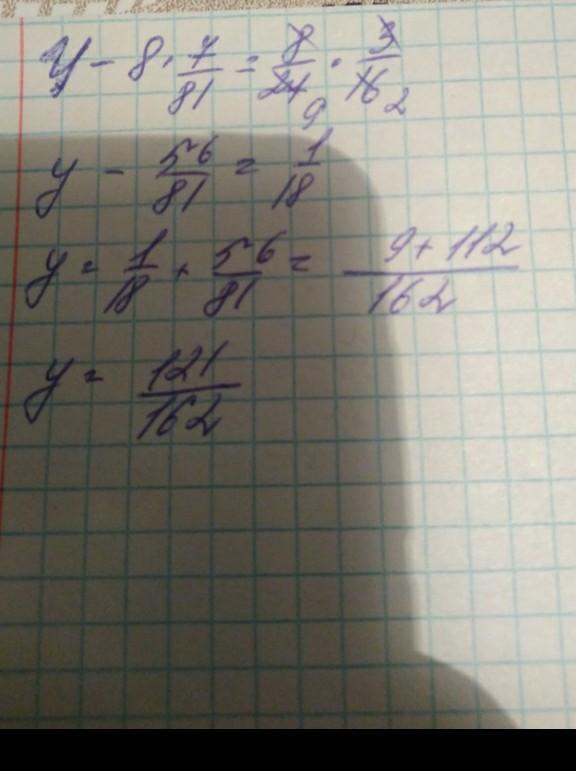 y - 8 · 7/81 = 8/24 · 3/16 2
9
y - 56/81 = 1/18
y = 1/18 + 56/81 = 9 + 112/162
y = 121/162